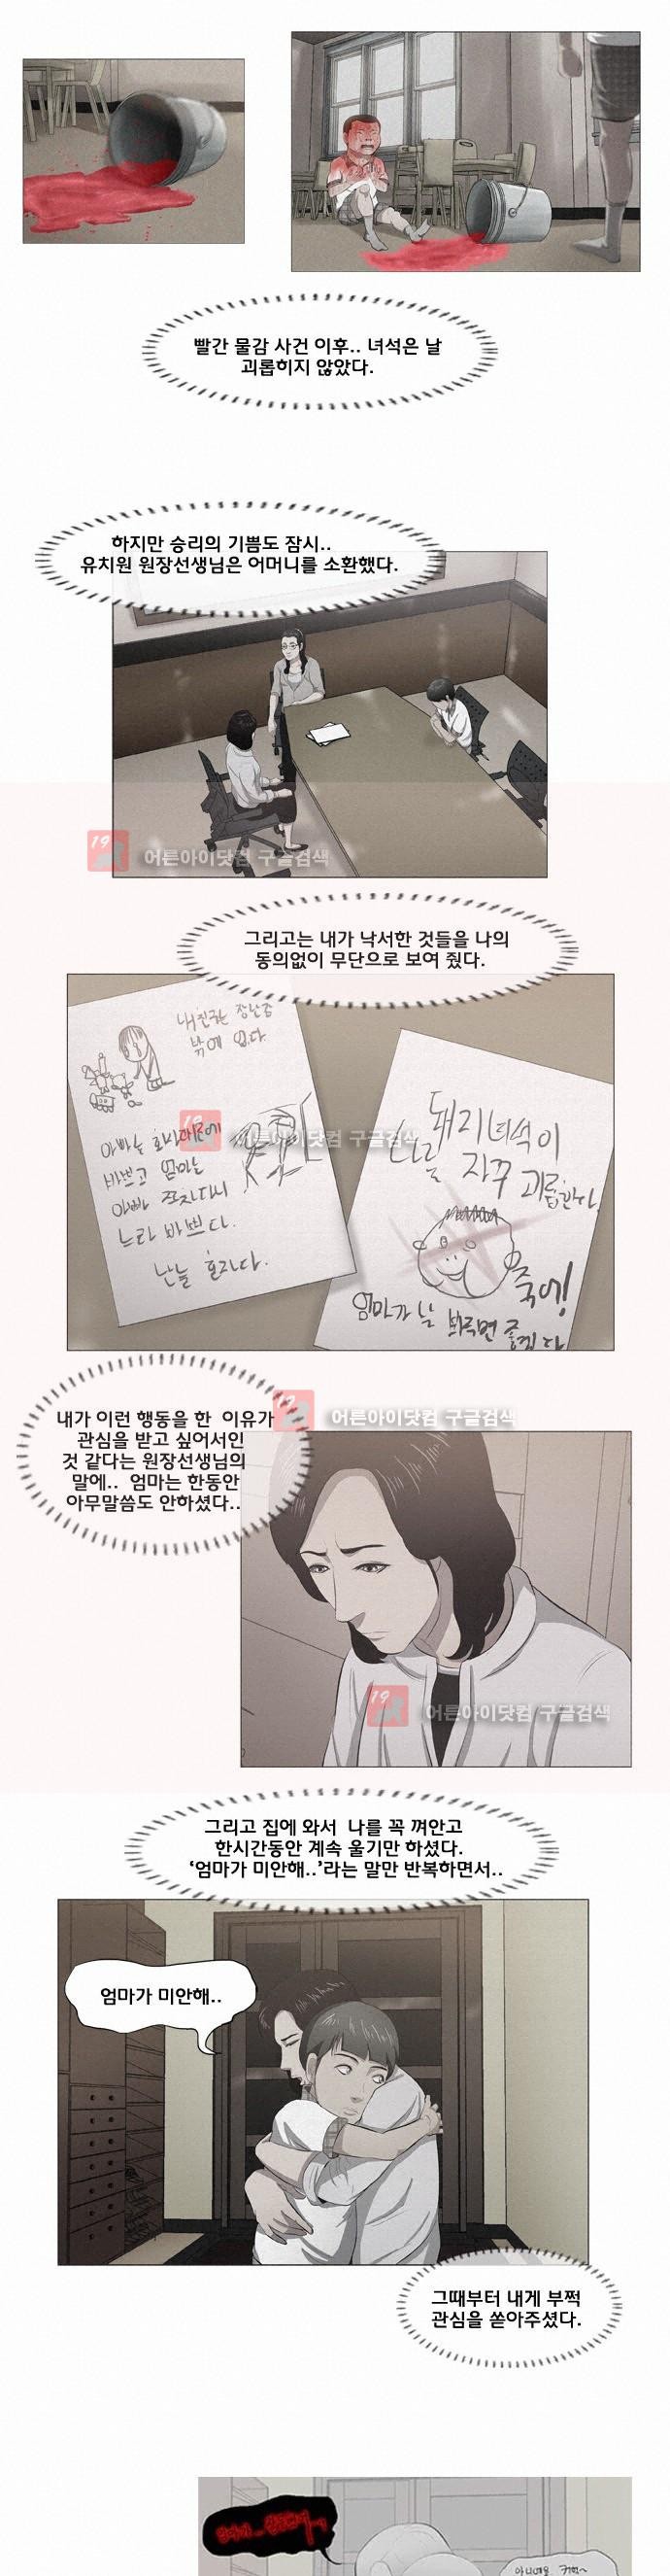 빨간 물감 사건 이후.. 녀석은 날
괴롭히지 않았다.
하지만 승리의 기쁨도 잠시..
유치원 원장선생님은 어머니를 소환했다.
19
어른아이닷컴 구글검색
그리고는 내가 낙서한 것들을 나의
동의없이 무단으로 보여 줬다.
내 친구는 장난감
밖에 없다
아빠는 회사때문에
바쁘고 엄마는
아빠 쫓자다시
느라 바쁘다.
난 늘 혼자다.
19
어른아이닷컴 구글검색
돼지녀석이
나를 자꾸 괴롭힌다.
죽어!
엄마가 날 봐주면 좋겠다
19
어른아이닷컴 구글검색
내가 이런 행동을 한 이유가
관심을 받고 싶어서인
것 같다는 원장선생님의
말에.. 엄마는 한동안
아무말씀도 안하셨다..
19
어른아이닷컴 구글검색
그리고 집에 와서 나를 꼭 껴안고
한시간동안 계속 울기만 하셨다.
‘엄마가 미안해..’라는 말만 반복하면서..
엄마가 미안해..
그때부터 내게 부쩍
관심을 쏟아주셨다.